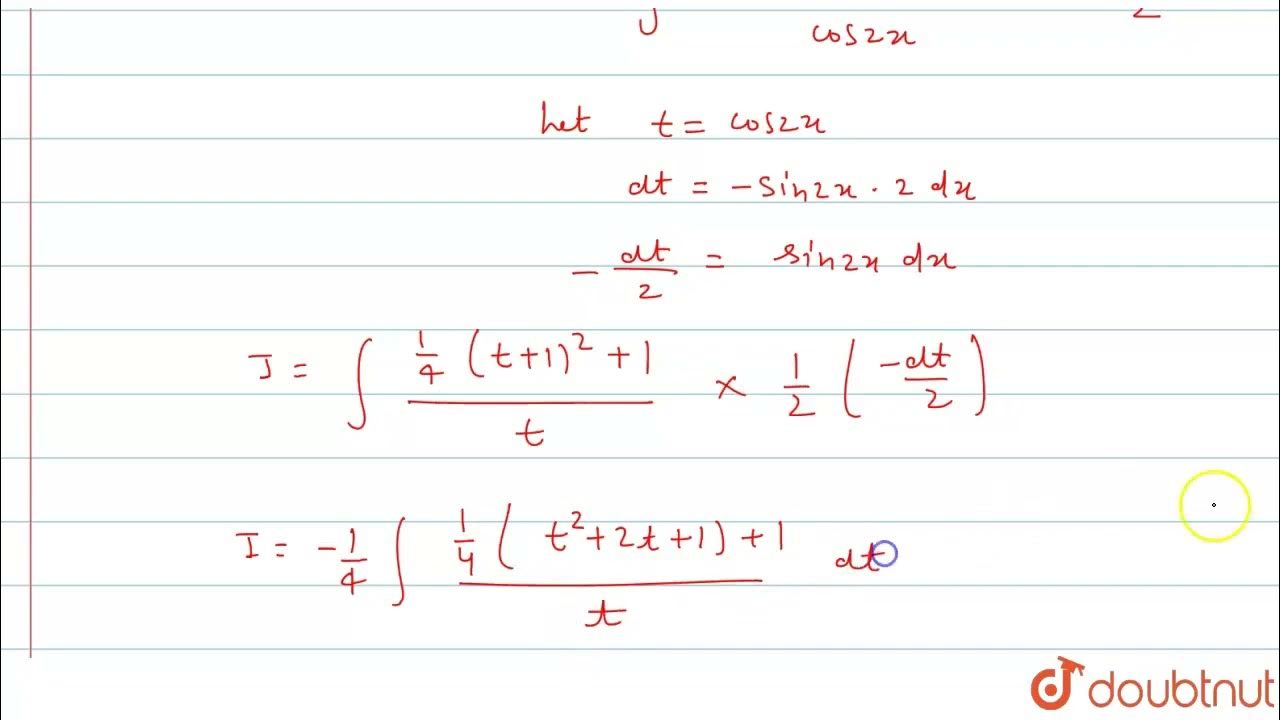 ∫ cos2x 2
Let t = cos2x
dt = -sin2x · 2 dx
- dt/2 = sin2x dx
I = ∫ (1/4 (t+1)² + 1)/t × 1/2 (-dt/2)
I = -1/4 ∫ (1/4 (t² + 2t + 1) + 1)/t dt
doubtnut